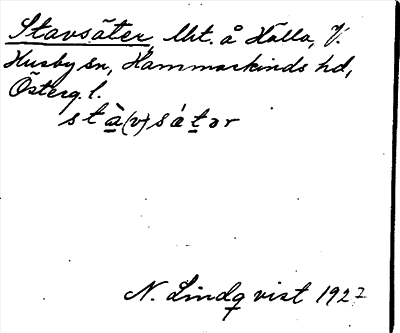 Stavsäter, lht. å Hälla, V.
Husby sn, Hammarkinds hd,
Österg. l.
stà(v)sá̤tər
N. Lindqvist 1927